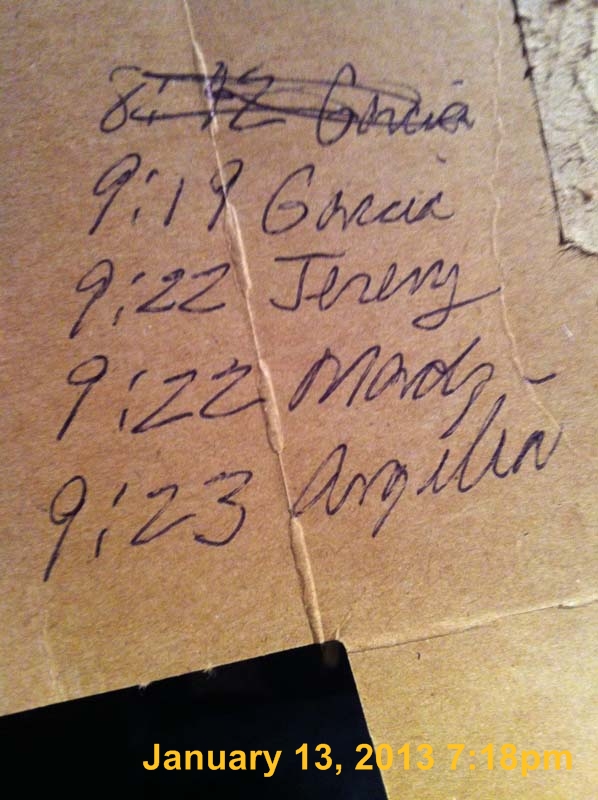 8:12 Garcia
9:19 Garcia
9:22 Jeremy
9:22
9:23 Angelia
January 13, 2013 7:18pm